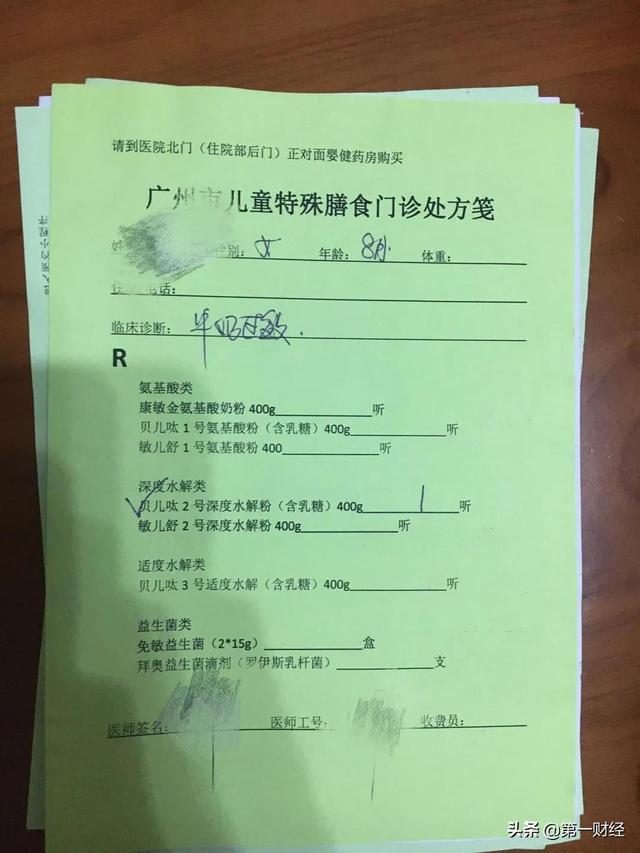 请到医院北门（住院部后门）正对面婴健药房购买
广州市儿童特殊膳食门诊处方笺
姓 性别：女 年龄：8月 体重：
住址/电话：
临床诊断：牛奶过敏.
R
氨基酸类
康敏金氨基酸奶粉 400g____________听
贝儿呔 1 号氨基酸粉（含乳糖）400g____________听
敏儿舒 1 号氨基酸粉 400____________听
深度水解类
✓贝儿呔 2 号深度水解粉（含乳糖）400g 1 听
敏儿舒 2 号深度水解粉 400g____________听
适度水解类
贝儿呔 3 号适度水解（含乳糖）400g____________听
益生菌类
免敏益生菌（2*15g）____________盒
拜奥益生菌滴剂（罗伊斯乳杆菌）____________支
医师签名： 医师工号： 收费员：
进入预约小程序
头条 @第一财经